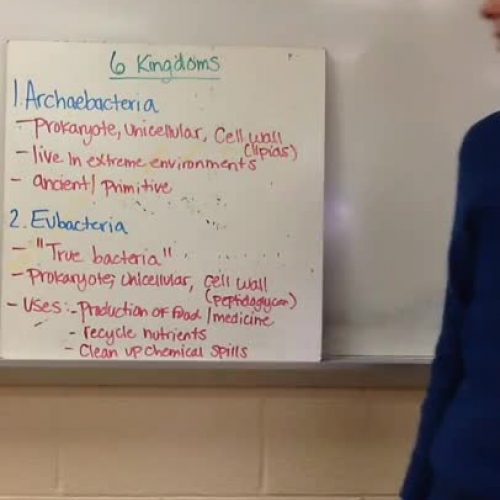 6 Kingdoms
1. Archaebacteria
- Prokaryote, Unicellular, Cell wall
(lipids)
- live in extreme environments
- ancient/primitive
2. Eubacteria
- "True bacteria"
- Prokaryote, Unicellular, cell wall
(peptidoglycan)
- Uses: - Production of food/medicine
- recycle nutrients
- Clean up chemical spills